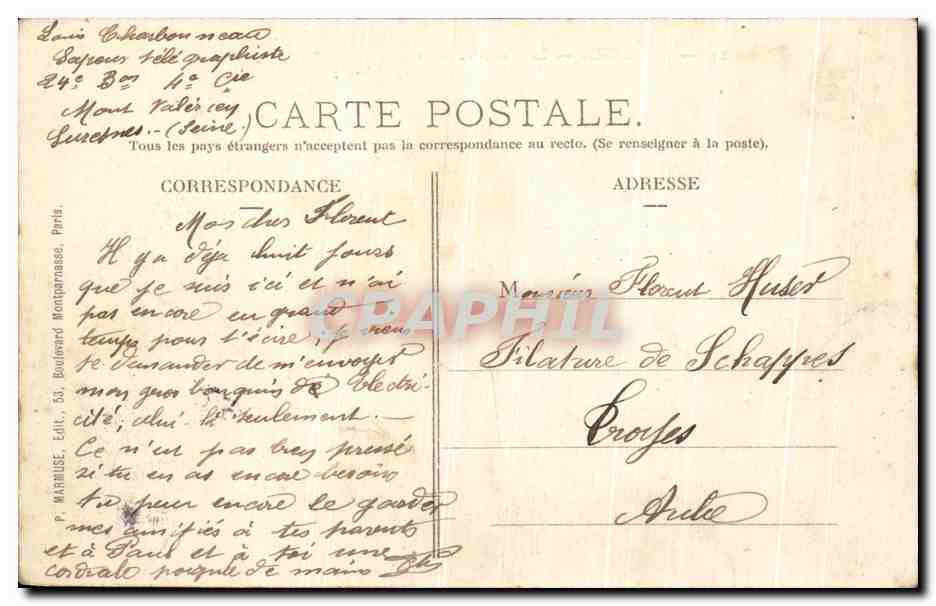 Louis Charbonneau
Sapeur télégraphiste
24e Bon 4e Cie
Mont Valérien
Suresnes - (Seine)
CARTE POSTALE.
Tous les pays étrangers n'acceptent pas la correspondance au recto. (Se renseigner à la poste).
CORRESPONDANCE
Mon cher Florent
Il y a déjà huit jours
que je suis ici et n'ai
pas encore eu grand
temps pour t'écire, je viens
te demander de m'envoyer
mon gros bouquin de Electri-
cité, celui-là seulement.-
Ce n'est pas bien pressé
si tu en as encore besoin
tu peux encore le garder
mes amitiés à tes parents
et à Paul et à toi une
cordiale poigné de mains
ADRESSE
Monsieur Florent Huser
Filature de Schappes
Troyes
Aube
P. MARMUSE, Edit., 53, Boulevard Montparnasse, Paris.
CPAPHIL